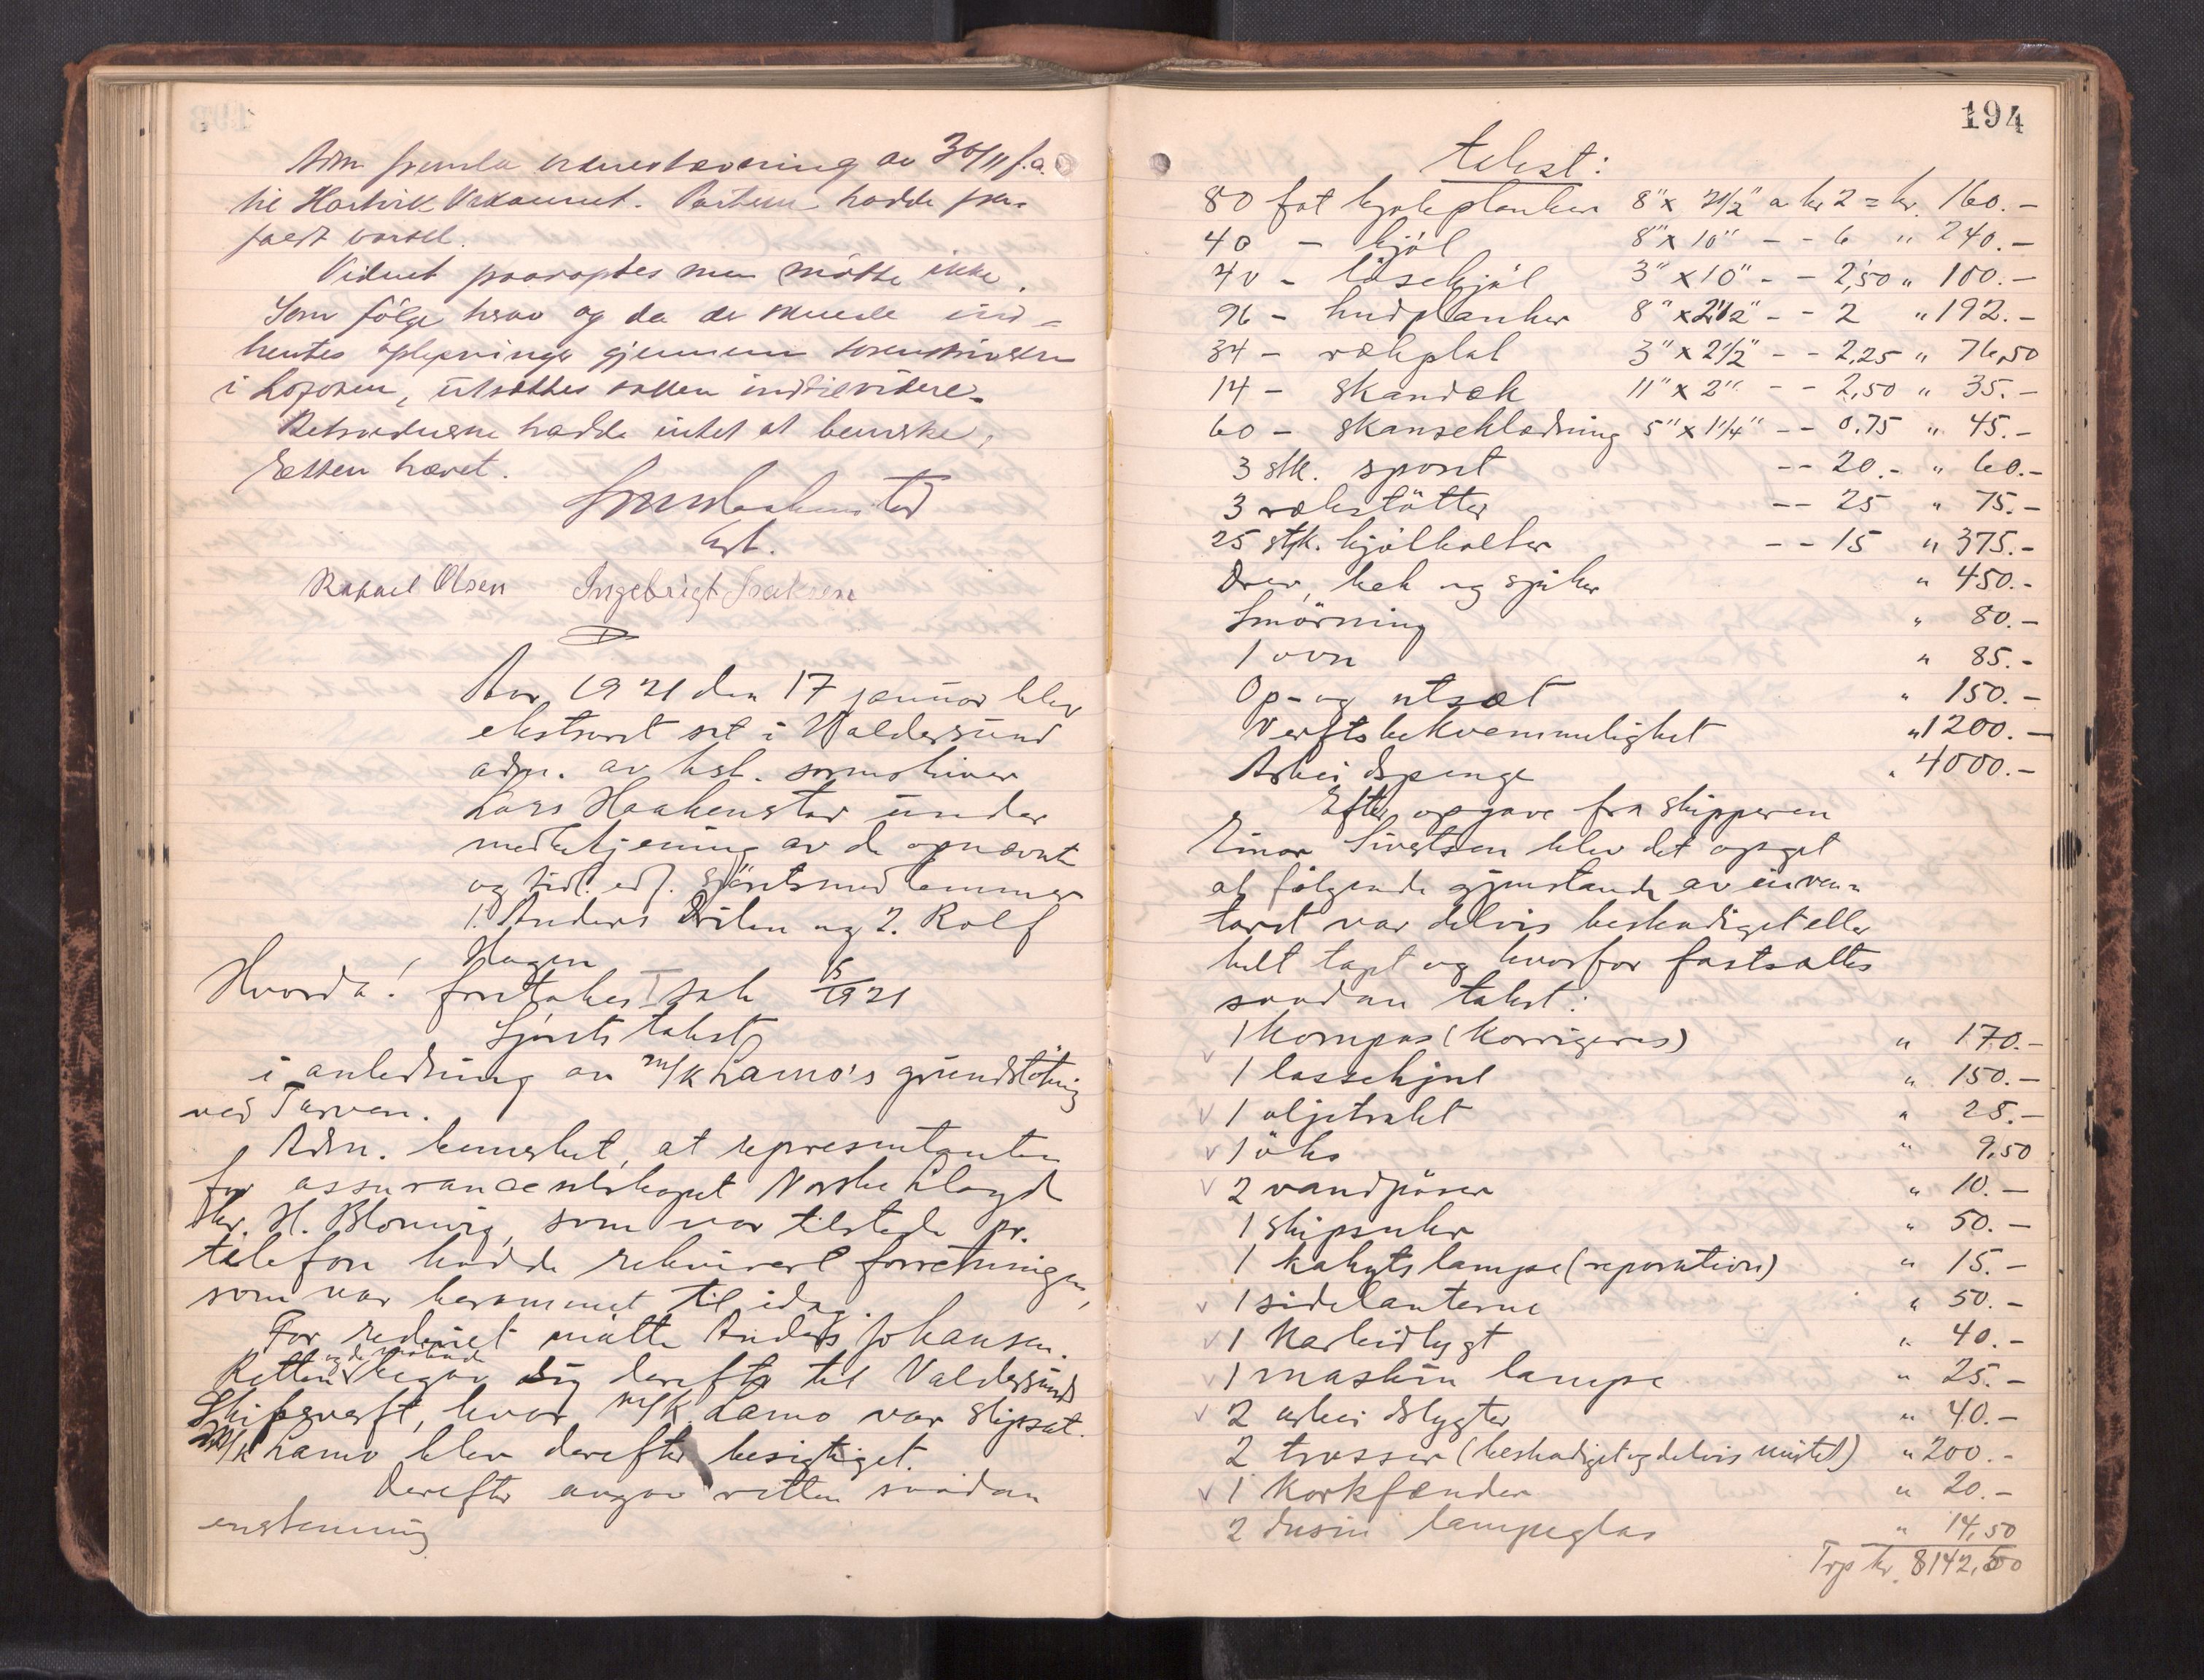 Adm. fremla vidnestevning av 30/11 f.a.
til Hartvik . Parten hadde for-
faldt varsel.
Vidnet paaroptes men møtte ikke.
Som følge herav og da der skulde ind-
hentes oplysninger gjennem sorenskriveren
i Lofoten, utsattes saken indtil videre.
Retsvidnerne hadde intet at bemerke,
Retten hævet.
hst.
Rafael Olsen Ingebrigt Isaksen
Aar 1921 den 17 januar blev
ekstraret sat i Valdersund
adm. av hst. sorenskriver
Lars Haakenstad under
medbetjening av de opnævnte
og tidl. edf. sjøretsmedlemmer
1. Anders Drilen og 2. Rolf
Hagen
Hvorda! foretokes I sak 5/1921
Sjøretstakst
i anledning av m/k Lamo's grundstøtning
ved Tarven.
Adm. bemerket, at representanten
for assuranceselskapet Norske Lloyd
hr. H. Blomvig, som var tilstede pr.
telefon hadde rekvirert forretningen,
som var berammet til idag.
For rederiet møtte Anders Johansen.
og de møtende
Retten begav sig derefter til Valdersund
Skipsverft, hvor m/k Lamo var slipsat.
m/k Lamo blev derefter besigtiget.
Derefter avgav retten saadan
enstemmig
194
takst:
80 fot kjølplanker 8" x 2½" a kr 2 = kr. 160.-
40 - kjøl 8" x 10" - - 6 " 240.-
40 - løsekjøl 3" x 10" - - 2,50 " 100.-
96 - hudplanker 8" x 2½" - - 2 " 192.-
34 - rækplat 3" x 2½" - - 2,25 " 76,50
14 - skandæk 11" x 2" - - 2,50 " 35.-
60 - skanseklædning 5" x 1¼" - - 0.75 " 45.-
3 stk. spont - - 20.- " 60.-
3 rækstøtter - - 25 " 75.-
25 stk. kjølbolter - - 15 " 375.-
Drev, bek og spiker " 450.-
Smørning " 80.-
1 ovn " 85.-
Op- og utsæt " 150.-
Verftsbekvemmelighet " 1200.-
Arbeidspenge " 4000.-
Efter opgave fra skipperen
Einar Sivertsen blev det opgit
at følgende gjenstande av inven-
taret var delvis beskadiget eller
helt tapt og hvorfor fastsattes
saadan takst:
1 kompas (korrigeres) " 170.-
1 lossehjul " 150.-
1 oljetrakt " 25.-
1 øks " 9,50
2 vandpøser " 10.-
1 skipsuhr " 50.-
1 kahytslampe (reparation) " 15.-
1 sidelanterne " 50.-
1 Karbidlygt " 40.-
1 maskin lampe " 25.-
2 arbeidslygter " 40.-
2 trosser (beskadiget og delvis mistet) " 200.-
1 Korkfender " 20.-
2 dusin lampeglas " 14,50
Trp kr. 8142,50